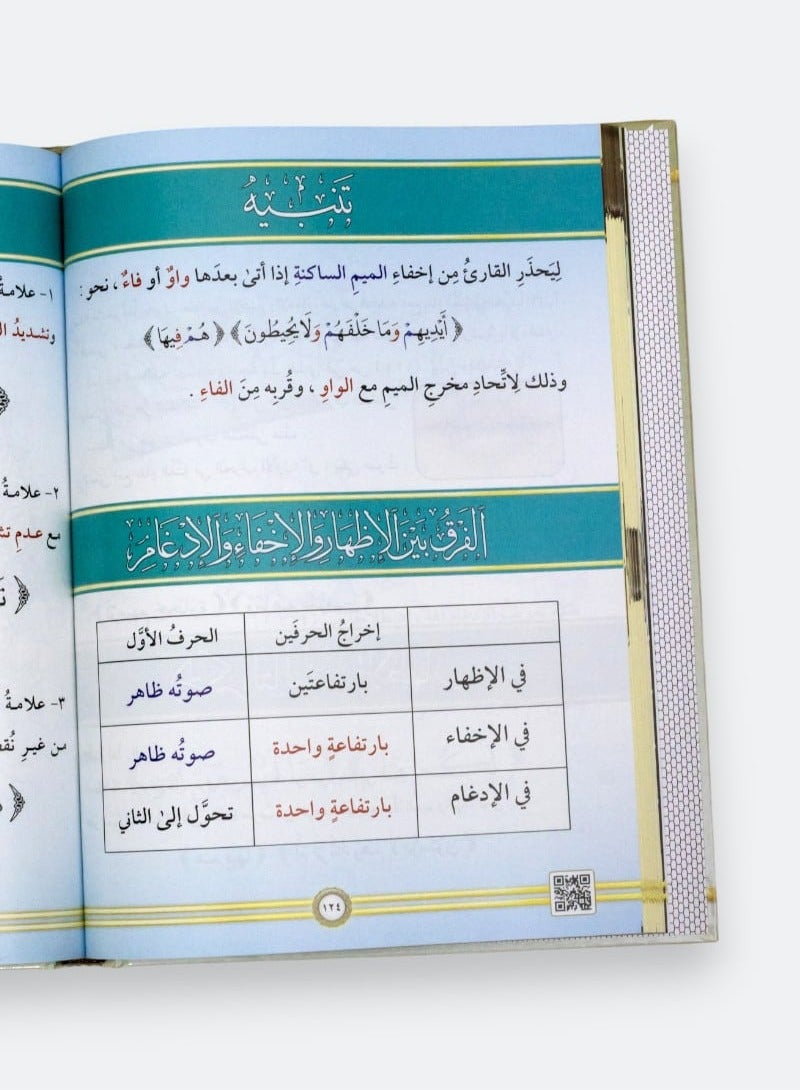 تَنبِيه
لِيَحذَرِ القارئُ مِن إخفاءِ الميمِ الساكنةِ إذا أتىٰ بعدَها واوٌ أو فاءٌ ، نحو :
﴿أَيْدِيهِمْ وَمَا خَلْفَهُمْ وَلَا يُحِيطُونَ﴾ ﴿هُمْ فِيهَا﴾
وذلك لِاتِّحادِ مخرجِ الميمِ مع الواوِ ، وقُربِه مِنَ الفاءِ .
الفَرقُ بَيْنَ الإِظهَارِ وَالإِخْفَاءِ وَالإِدْغَامِ
إخراجُ الحرفَين	الحرفُ الأوَّل
في الإظهار	بارتفاعتَين	صوتُه ظاهر
في الإخفاء	بارتفاعةٍ واحدة	صوتُه ظاهر
في الإدغام	بارتفاعةٍ واحدة	تحوَّل إلىٰ الثاني
١٢٤
١- علامةُ
وتشديدُ
٢- علامةُ
مع عدمِ
٣- علامةُ
من غيرِ